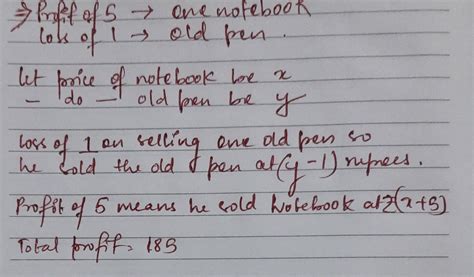 ⇒ Profit of 5 → one notebook
loss of 1 → old pen.
let price of notebook be x
— do — old pen be y
loss of 1 on selling one old pen so
he sold the old pen at (y-1) rupees.
Profit of 5 means he sold Notebook at ₹(x+5)
Total profit = 185